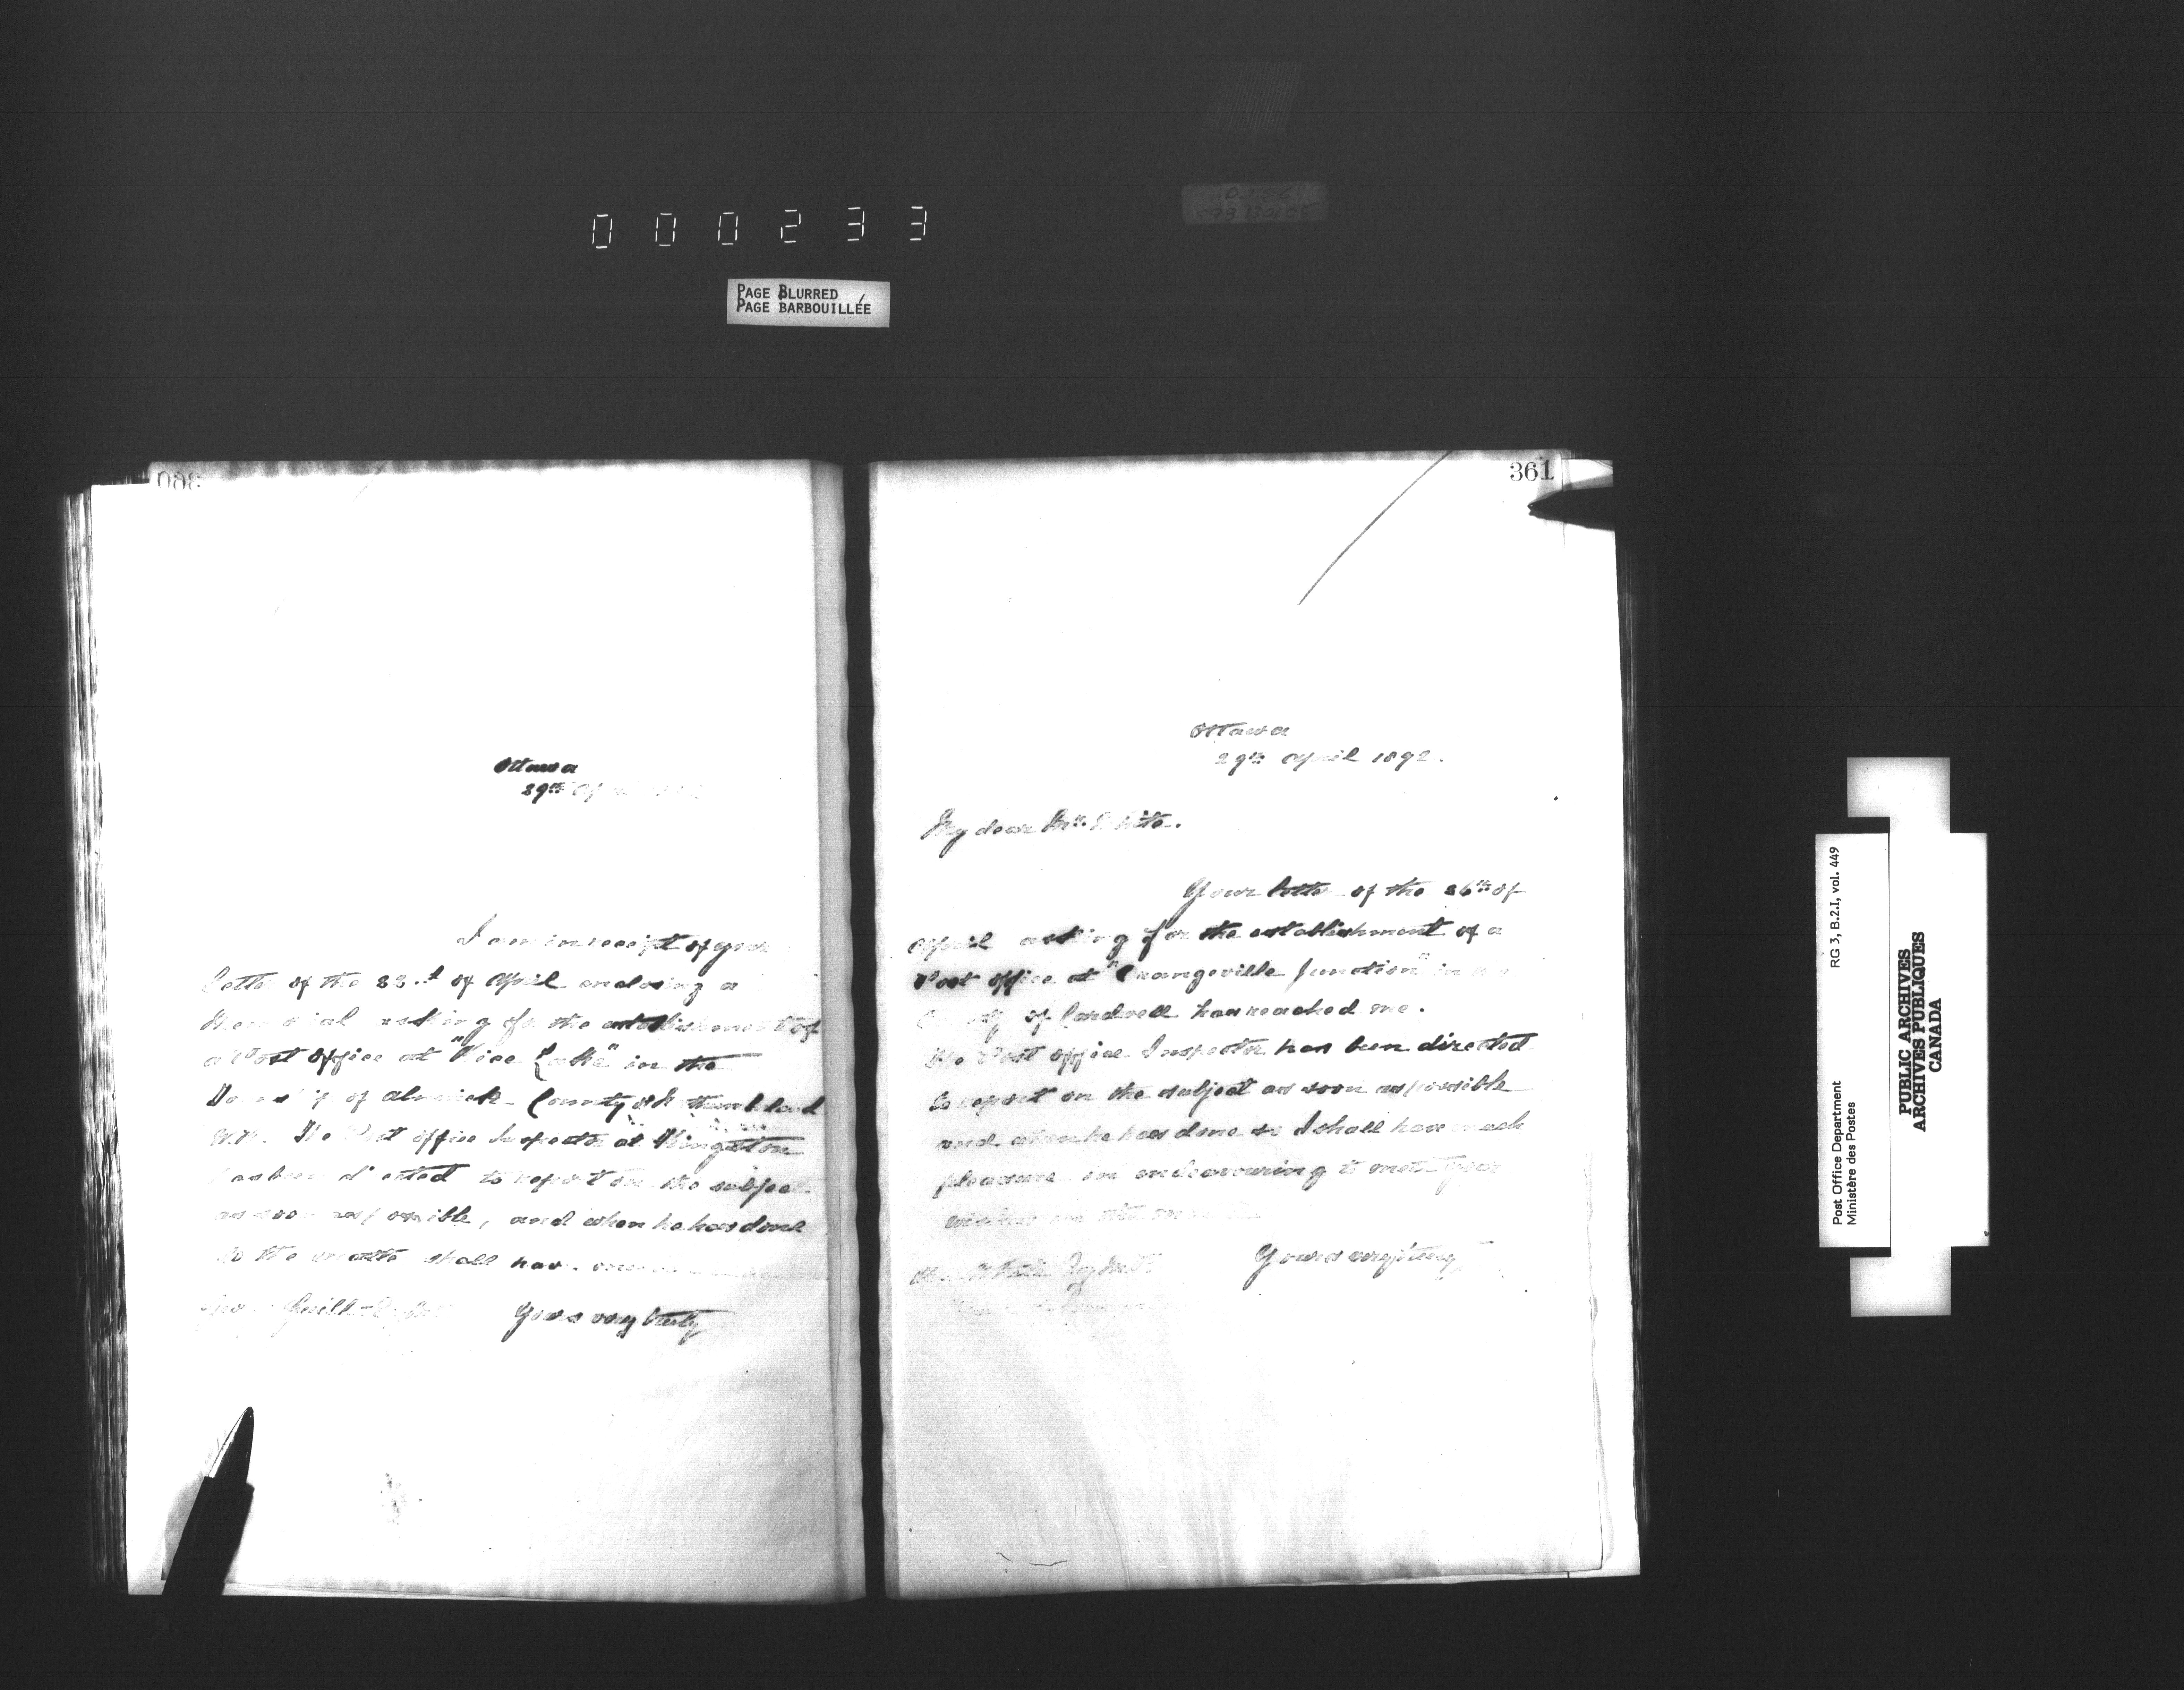 000233
PAGE BLURRED
PAGE BARBOUILLÉE
360
Ottawa
29th
I am in receipt of your
Letter of the of April enclosing a
Memorial asking for the establishment of
a Post Office at "Rice Lake" in the
of Alnwick County
The Post Office Inspector at Kingston
has been directed to report on the subject
as soon as possible, and when he has done
so the matter shall have
Yours very truly
361
Ottawa
29th April 1892.
My dear Mr. White.
Your letter of the 26th of
April asking for the establishment of a
Post Office at "Orangeville Junction" in the
County of Cardwell has reached me.
The Post Office Inspector has been directed
to report on the subject as soon as possible
and when he has done so I shall have much
pleasure in endeavouring to meet your
wishes in the
Yours very truly
Post Office Department
Ministère des Postes
RG 3, B.2.I, vol. 449
PUBLIC ARCHIVES
ARCHIVES PUBLIQUES
CANADA